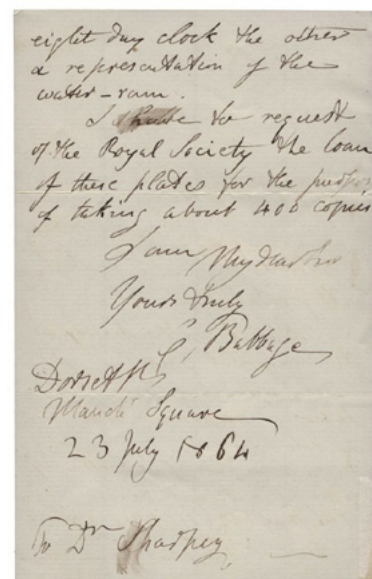 eight day clock the other
a representation of the
water-ram.
I have to request
of the Royal Society the loan
of these plates for the purpose
of taking about 400 copies
I am My dear Sir
Yours truly
C. Babbage
Dorset St
Manch Square
23 July 1864
To Dr Sharpey